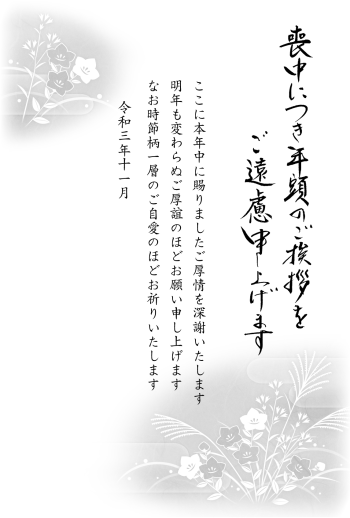 喪中につき年頭のご挨拶を
ご遠慮申し上げます
ここに本年中に賜りましたご厚情を深謝いたします
明年も変わらぬご厚誼のほどお願い申し上げます
なお時節柄一層のご自愛のほどお祈りいたします
令和三年十一月